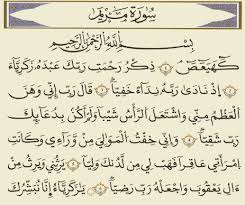 سورة مريم
بسم الله الرحمن الرحيم
كهيعص ١ ذكر رحمت ربك عبده زكرياء
٢ إذ نادى ربه نداء خفيا ٣ قال رب إني وهن
العظم مني واشتعل الرأس شيبا ولم أكن بدعائك
رب شقيا ٤ وإني خفت الموالي من وراءي وكانت
امرأتي عاقرا فهب لي من لدنك وليا ٥ يرثني ويرث من
آل يعقوب واجعله رب رضيا ٦ يا زكرياء إنا نبشرك